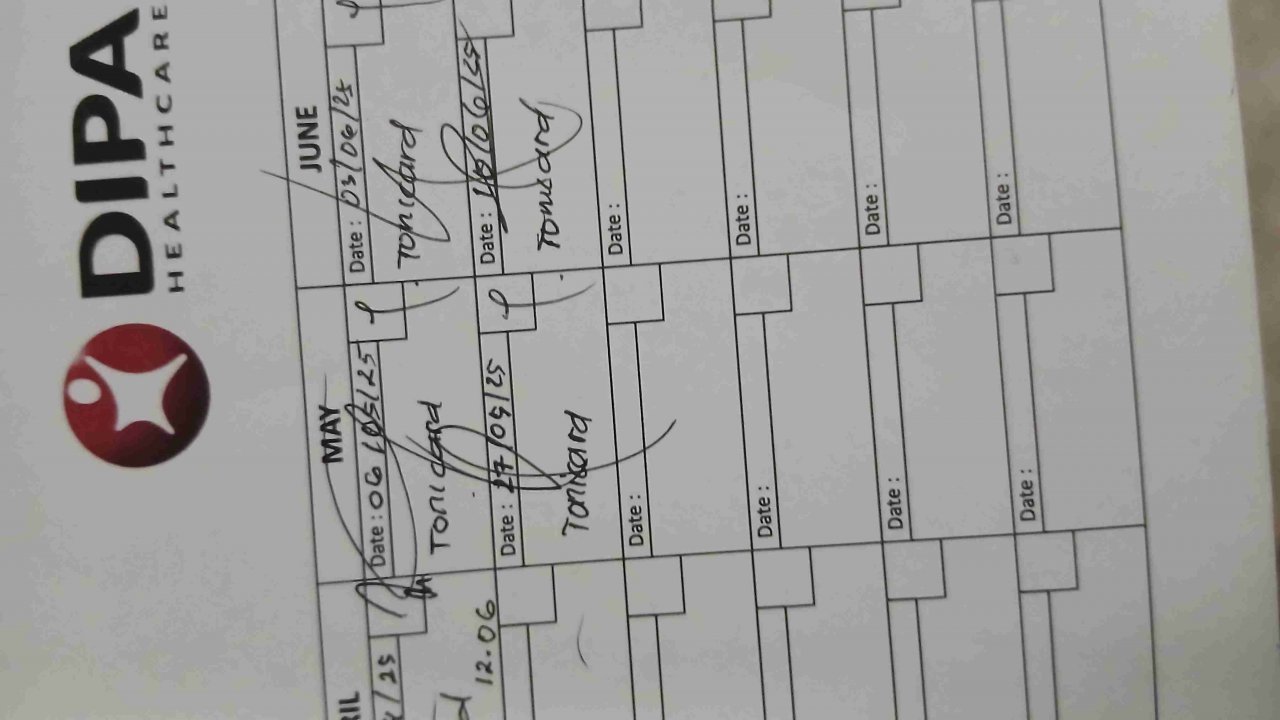 DIPA
HEALTHCARE
RIL
MAY
JUNE
/25
Date : 06/05/25
Date : 03/06/25
Tonicard
Tonicard
12.06
Date : 27/05/25
Date : 10/06/25
Tonicard
Tonicard
Date :
Date :
Date :
Date :
Date :
Date :
Date :
Date :